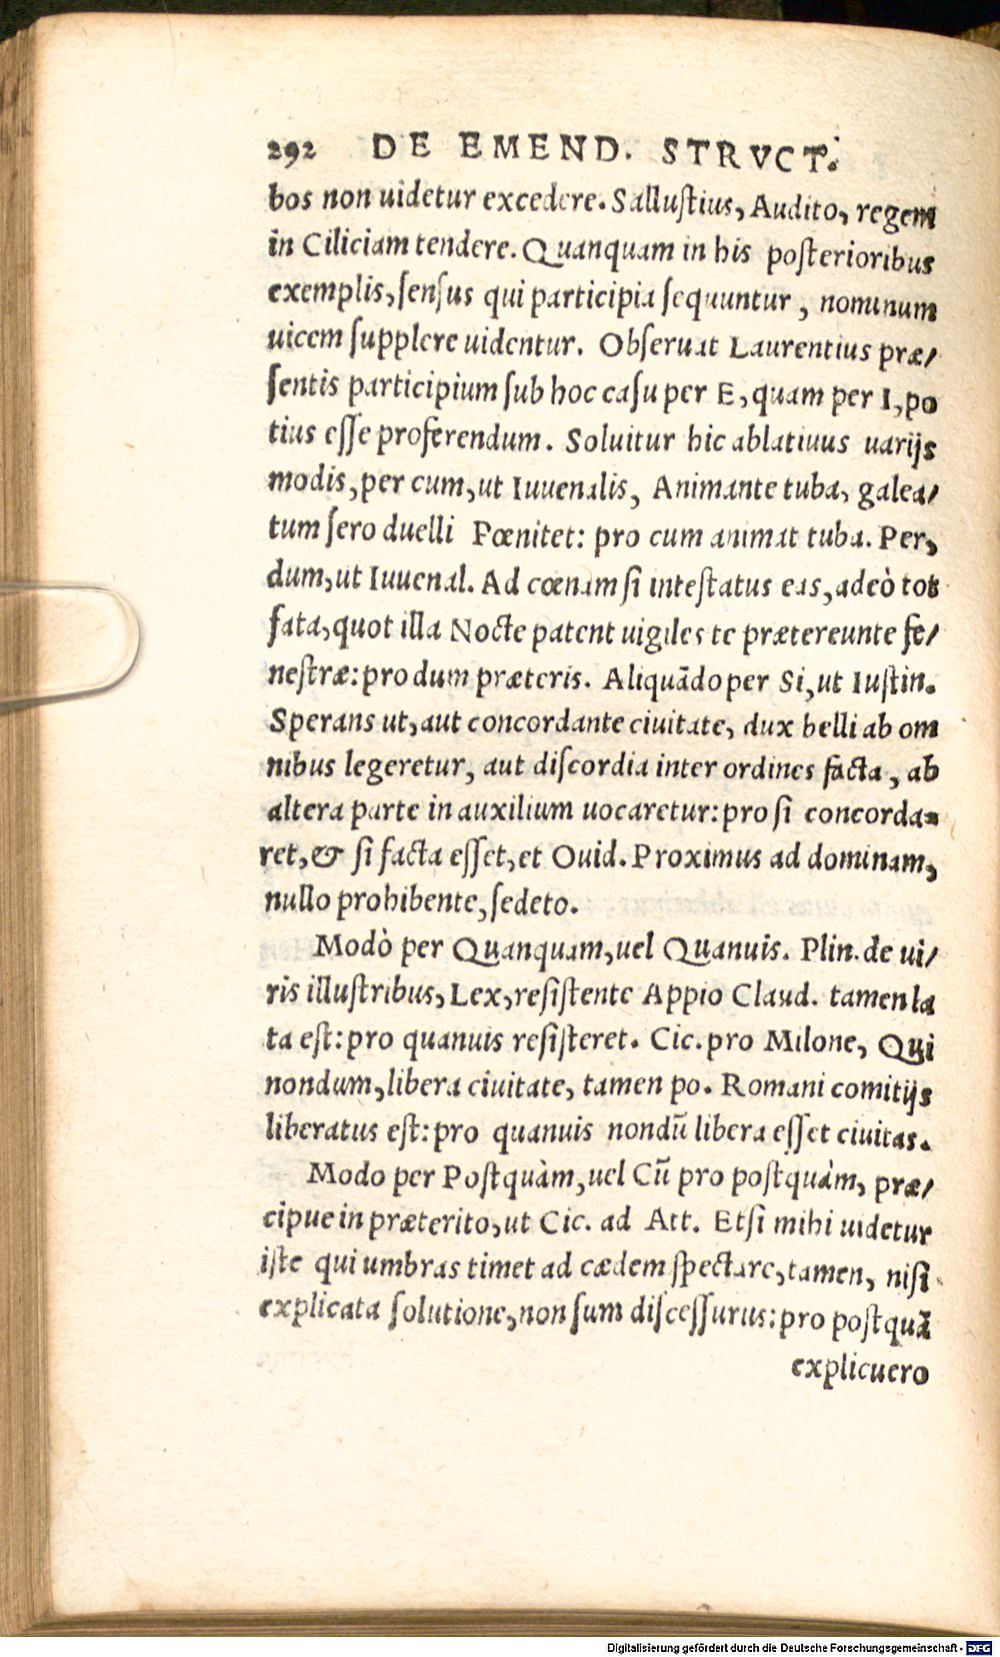 292 DE EMEND. STRVCT.
bos non uidetur excedere. Salluſtius, Audito, regem
in Ciliciam tendere. Quanquam in his poſterioribus
exemplis, ſenſus qui participia ſequuntur, nominum
uicem ſupplere uidentur. Obſeruat Laurentius præ/
ſentis participium ſub hoc caſu per E, quam per I, po
tius eſſe proferendum. Soluitur hic ablatiuus uarijs
modis, per cum, ut Iuuenalis, Animante tuba, galea/
tum ſero duelli Pœnitet: pro cum animat tuba. Per,
dum, ut Iuuenal. Ad cœnam ſi inteſtatus eas, adeò tot
fata, quot illa Nocte patent uigiles te prætereunte fe/
neſtræ: pro dum præteris. Aliquādo per Si, ut Iuſtin.
Sperans ut, aut concordante ciuitate, dux belli ab om
nibus legeretur, aut diſcordia inter ordines facta, ab
altera parte in auxilium uocaretur: pro ſi concorda=
ret, & ſi facta eſſet, et Ouid. Proximus ad dominam,
nullo prohibente, ſedeto.
Modò per Quanquam, uel Quanuis. Plin. de ui/
ris illuſtribus, Lex, reſiſtente Appio Claud. tamen la
ta eſt: pro quanuis reſiſteret. Cic. pro Milone, Qui
nondum, libera ciuitate, tamen po. Romani comitijs
liberatus eſt: pro quanuis nondū libera eſſet ciuitas.
Modo per Poſtquàm, uel Cū pro poſtquàm, præ/
cipue in præterito, ut Cic. ad Att. Etſi mihi uidetur
iſte qui umbras timet ad cædem ſpectare, tamen, niſi
explicata ſolutione, non ſum diſceſſurus: pro poſtquā
explicuero
Digitalisierung gefördert durch die Deutsche Forschungsgemeinschaft - DFG